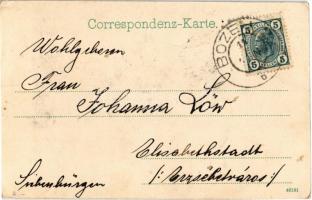 Correspondenz-Karte.
BOZE
5 5
5 5
Wohlgeboren
Frau
Johanna Löw
Elisabethstadt
/: Erzsébetváros :/
Siebenbürgen